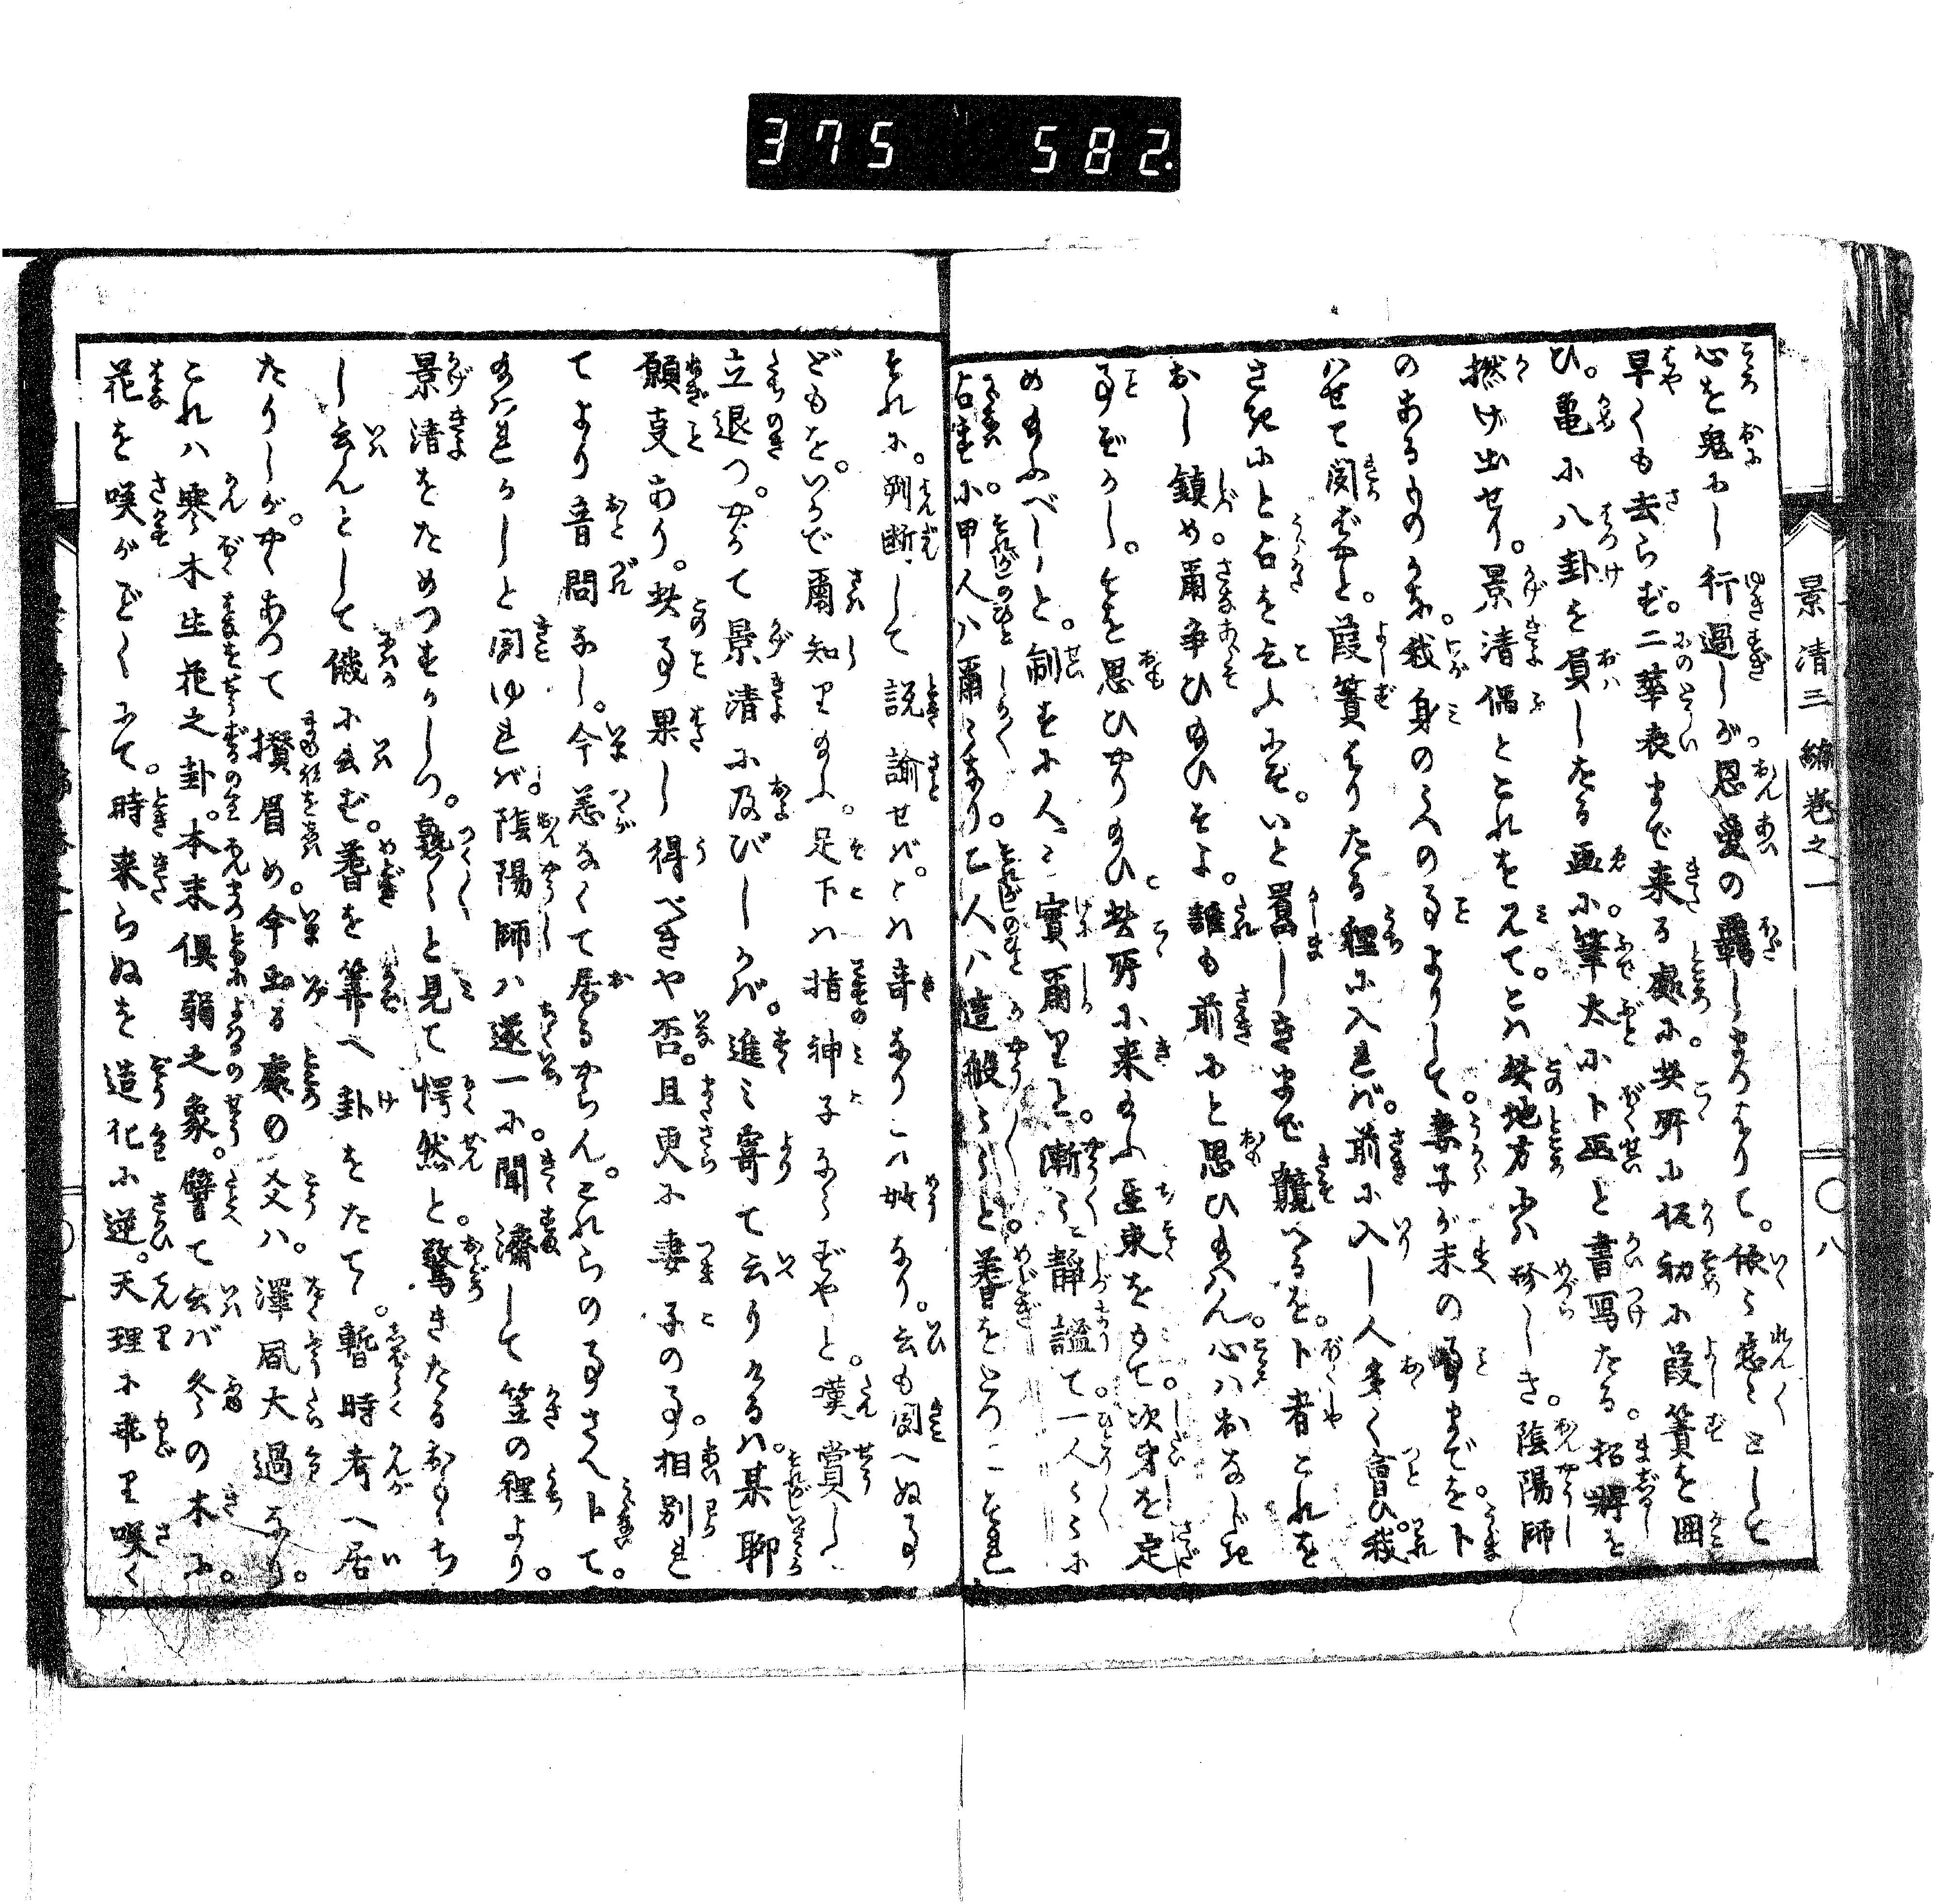 375 582
景清三編巻之一 〇八
心を鬼にし行過しが恩愛の羈しまつはりて。依々恋々として
早くも去らず。二華表まで来る處に。此所に仮初に葭簀を囲
ひ。亀に八卦を負したる画に。筆太に卜画と書写たる。招牌を
撚げ出せり。景清偶とこれを見て。こは此地方には珍しき。陰陽師
のあるものかな。我身のうへの事よりして。妻子が末の事までを。卜
はせて聞ばやと。葭簀はりたる裡に入れば。前に入し人多く會ひ。我
さきにと占を乞ふにぞ。いと囂しきまで競へるを。卜者これを
おし鎮め。爾争ひ給ひそよ。誰も前にと思ひ給はん心はおなじ
事ぞかし。とを思ひやり給ひ此所に来給ふ
め給ふべしと。制するに人々實爾里と。漸々静謐て一人々々に
占ふに。甲人は爾々なり。乙人は這般々々と。蓍をとつこそれ
それに。判断して説諭せば。こは奇なりこは妙なり。云も聞へぬ事
どもを。いかで爾知り給ふ。足下は指神子ならずやと。嘆賞し
立退つ。やがて景清に及びしかば。進み寄て云りけるは。某聊
願支あり。此事果し得べきや否。且更に妻子の事。相別れ
てより音問なし。今恙なくて居るやらん。これらの事さへ卜て。
給はれかしと聞ゆれば。陰陽師は逐一に。聞濟して笠の裡より。
景清をためつすがしつ。熟々と見て愕然と。驚きたるおももち
し云んとして儀に云ず。蓍を筭へ卦をたて。暫時考へ居
たりしが。やゝあつて攅眉め今出る處の爻は。澤風大過なり。
これは寒木生花之卦。本末倶弱之象。譬て云ば冬の木に。
花を咲がごとくにて。時来らぬを造化に逆。天理に乖り咲く